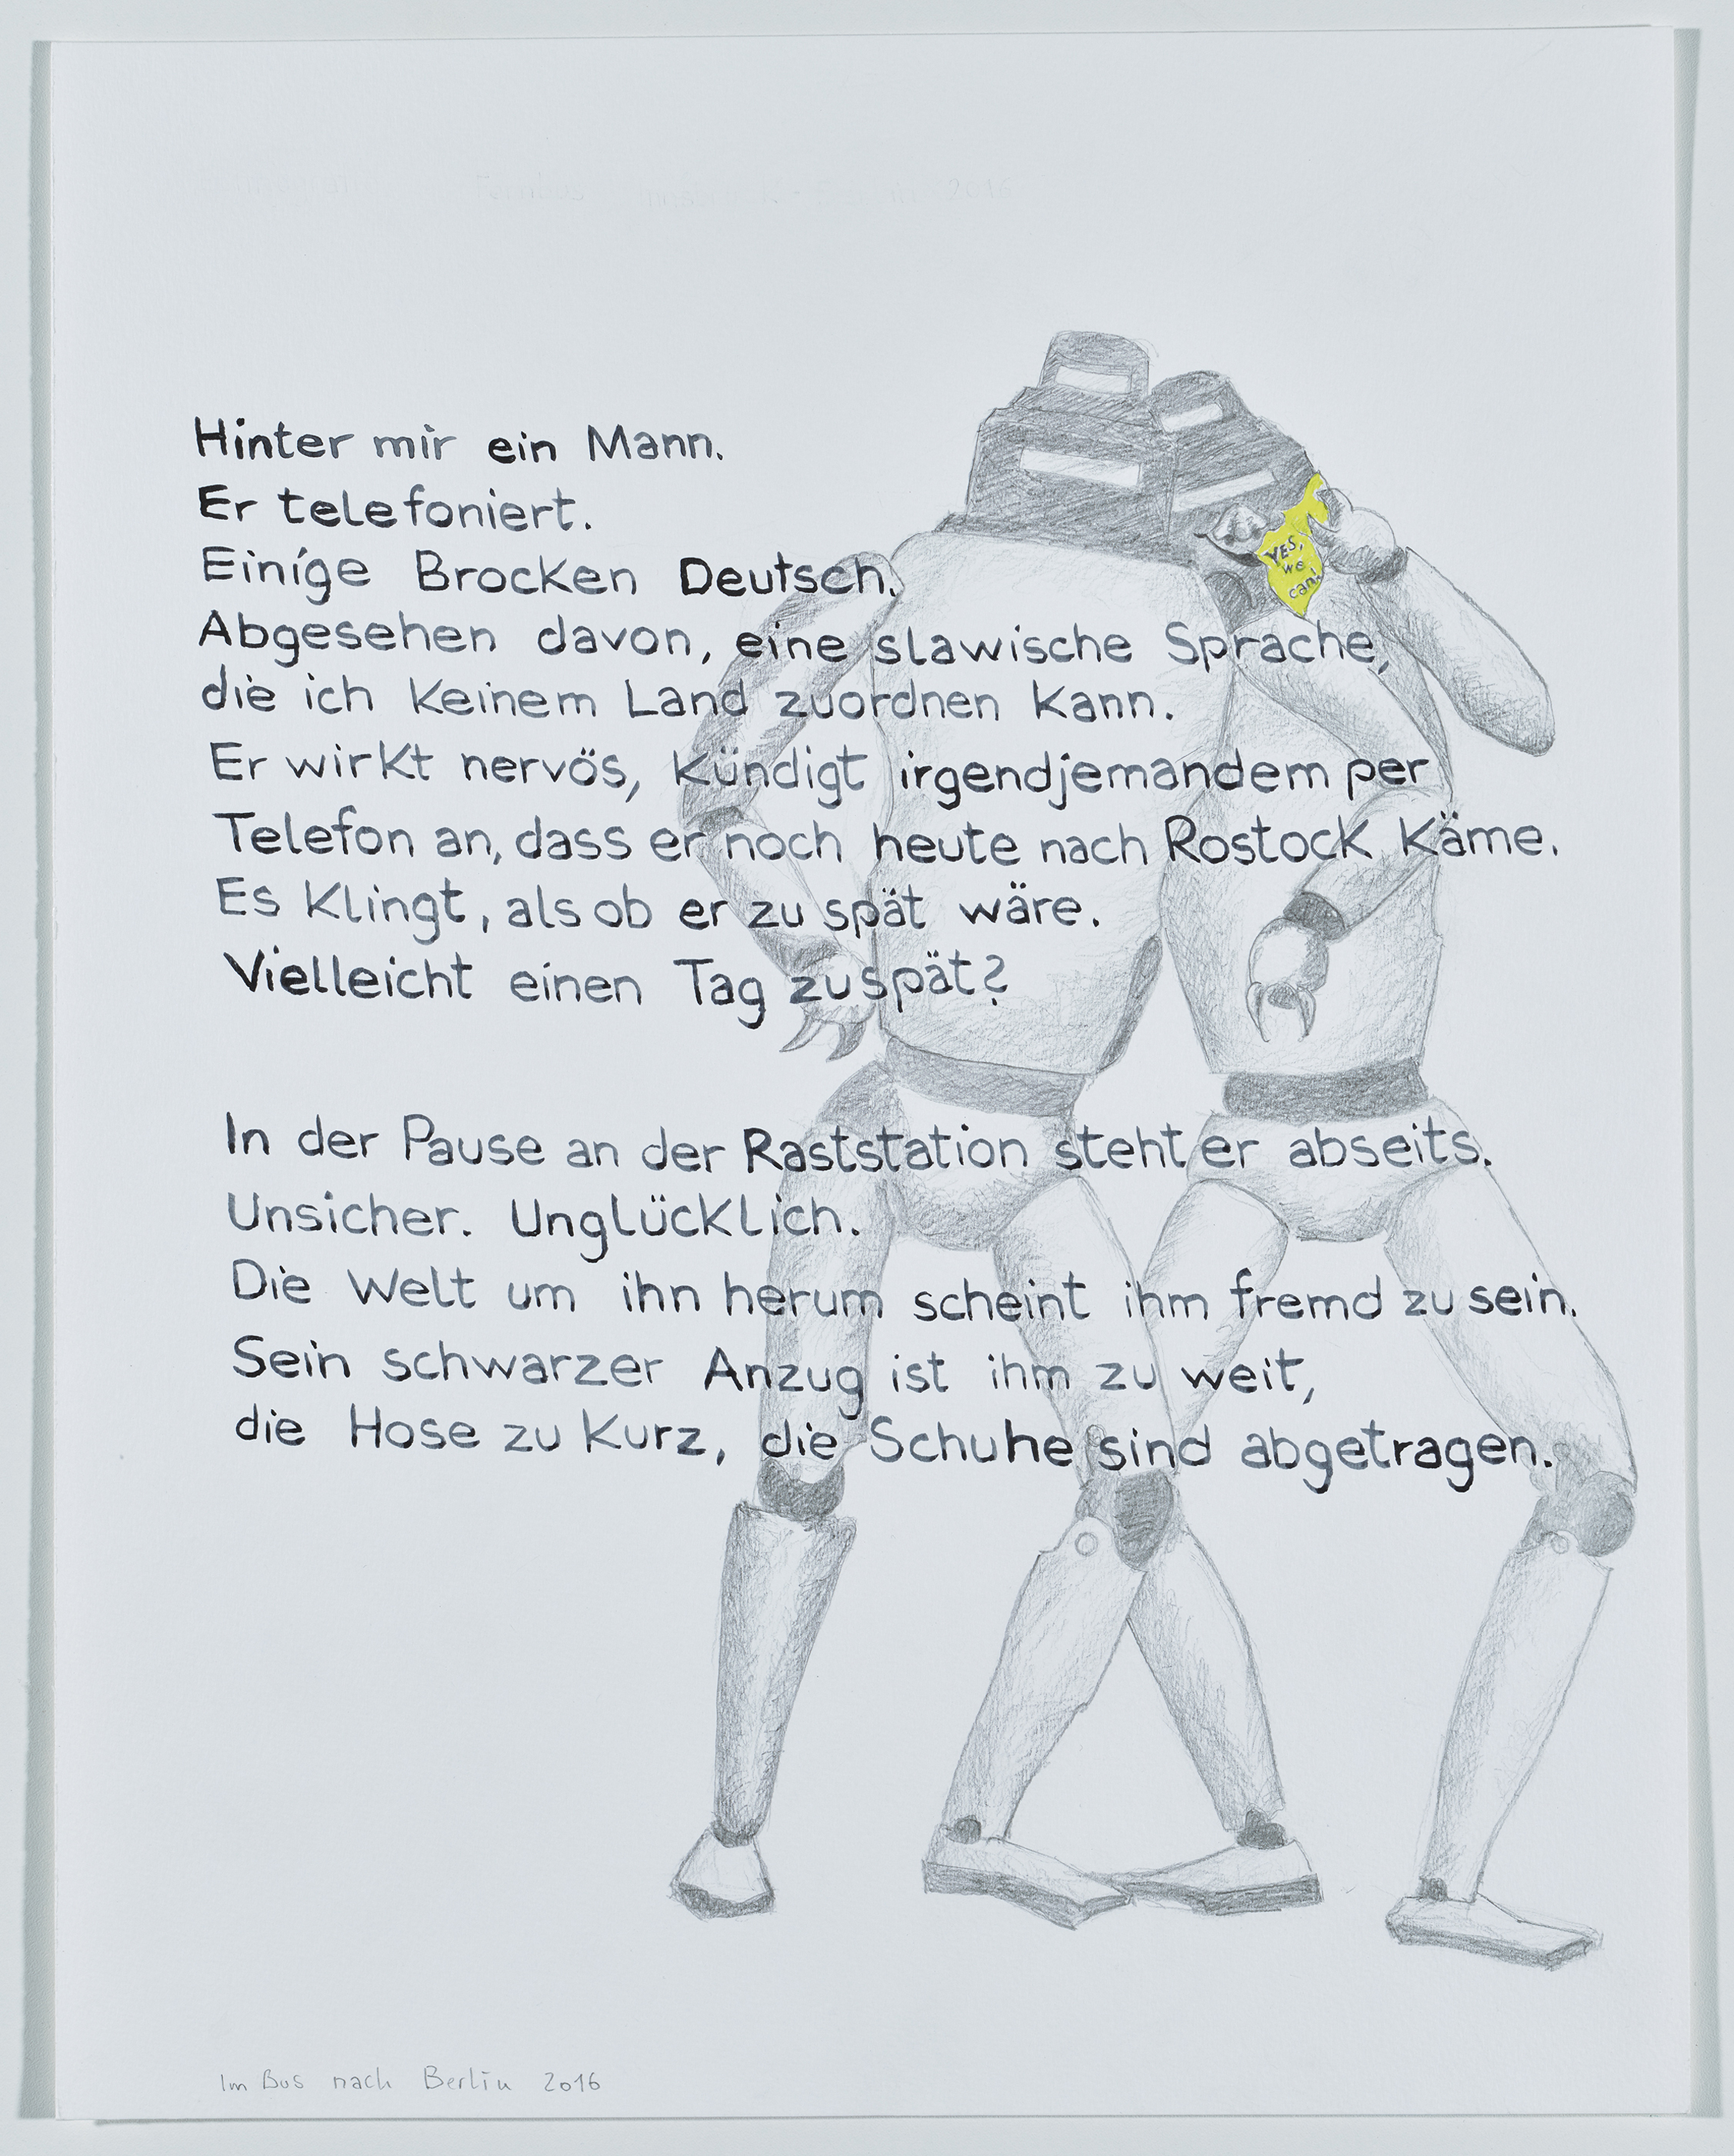 2016
Hinter mir ein Mann.
Er telefoniert.
Einige Brocken Deutsch.
YES,
we
can!
Abgesehen davon, eine slawische Sprache,
die ich keinem Land zuordnen kann.
Er wirkt nervös, kündigt irgendjemandem per
Telefon an, dass er noch heute nach Rostock käme.
Es klingt, als ob er zu spät wäre.
Vielleicht einen Tag zu spät?
In der Pause an der Raststation steht er abseits.
Unsicher. Unglücklich.
Die Welt um ihn herum scheint ihm fremd zu sein.
Sein schwarzer Anzug ist ihm zu weit,
die Hose zu kurz, die Schuhe sind abgetragen.
Im Bus nach Berlin 2016